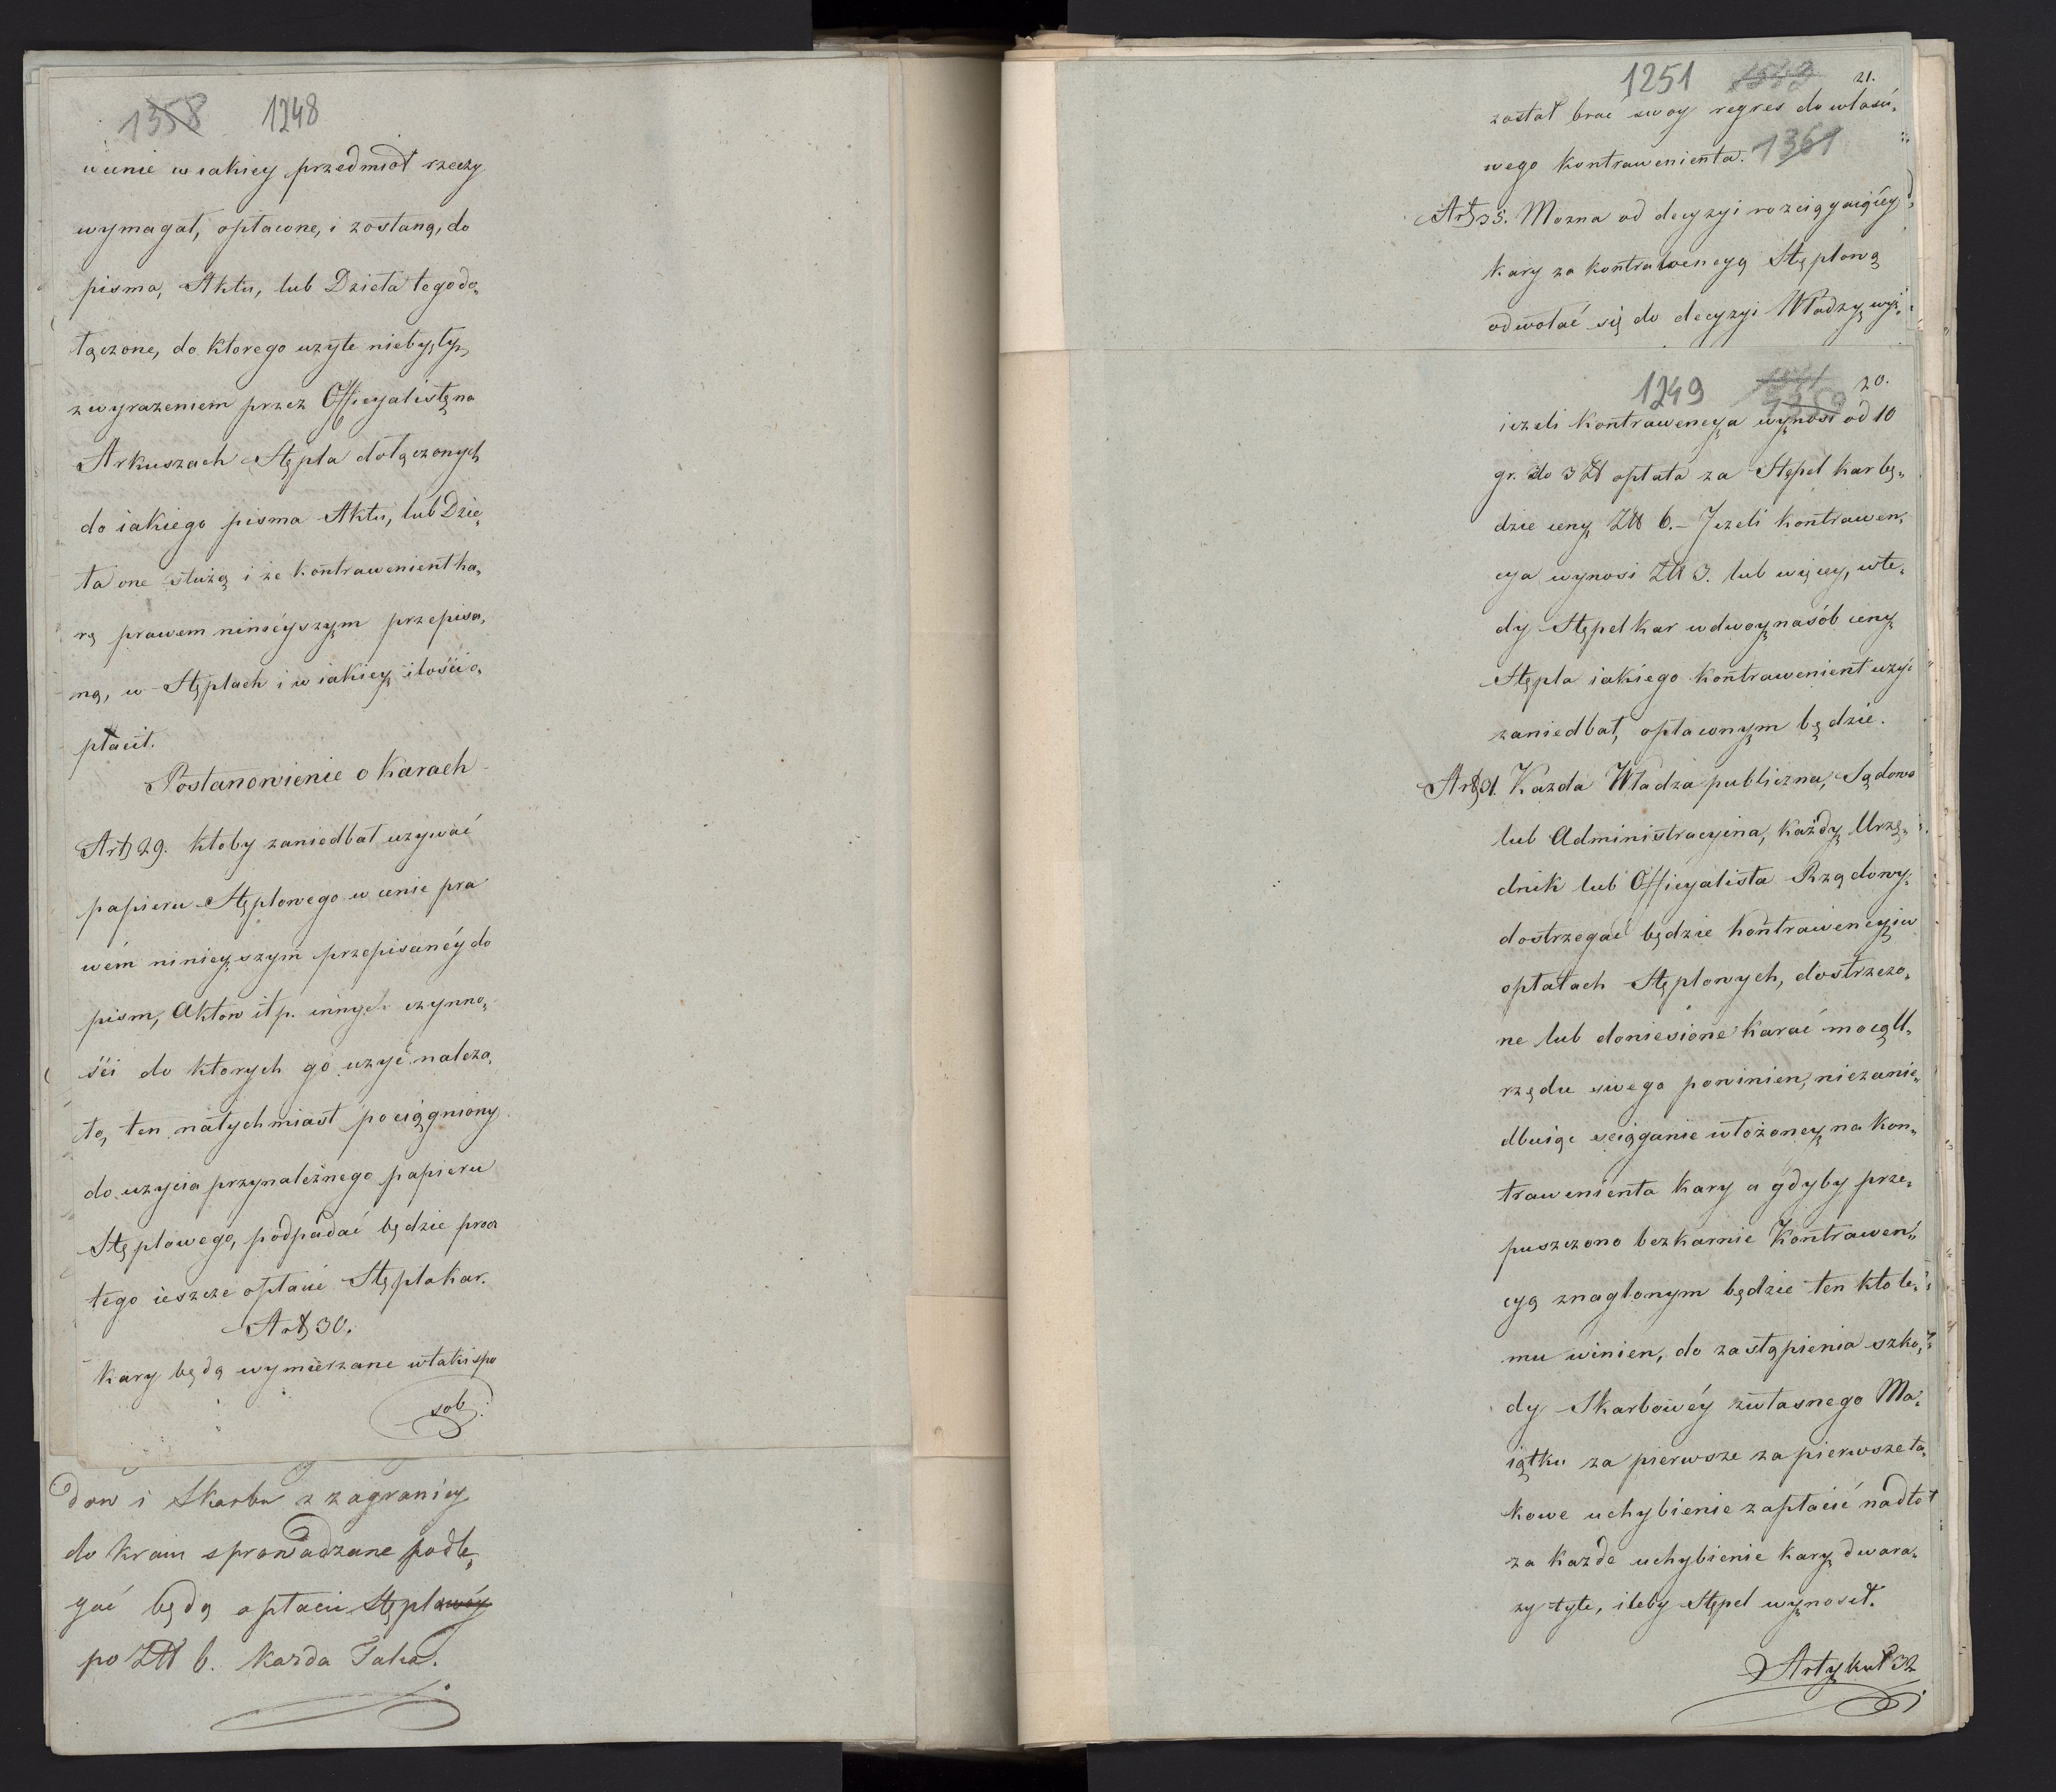 1358 1248
w cenie w iakiey przedmiot rzeczy
wymagał, opłacone, i zostaną, do
pisma, Aktu, lub Dzieła tego do„
łączone, do ktorego uzyte niebyły,
z wyrazeniem przez Officyalistę na
Arkuszach Stępla dołączonych
do iakiego pisma Aktu, lub Dzie„
ła one służą i że kontrawenient ka„
rę prawem ninieyszym przepisa„
ną, w Stęplach i w iakiey ilości o„
płacił.
Postanowienie o Karach
Art 29. ktoby zaniedbał uzywać
papieru Stęplowego w cenie pra
wém ninieyszym przepisanéy do
pism, Aktow itp. innych czynno„
ści do ktorych go uzyć naleza„
ło, ten natychmiast pociągniony
do uzycia przynależnego papieru
Stęplowego, podpadać będzie procz
tego ieszcze opłacie Stępla kar.
Art 30.
Kary będą wymierzane w taki spo
sob:
dow i Skarbu z zagranicy
do kraiu sprowadzane podle„
gać będą opłacie Stęplowéy
po Złł 6. kazda Talia.
1251 21.
został brać swoy regres do właści„
wego kontrawenienta. 1361
Art 35. Mozna od decyzyi rozciągaiącey
kary za kontrawencyą Stęplową
odwołać się do decyzyi Władzy wyż„
1249 1359 20.
iezeli kontrawencya wynosi od 10
gr. do 3 Zł opłata za Stępel kar bę„
dzie ceny Złł 6.– Jezeli kontrawen„
cya wynosi Złł 3. lub więcey, wte„
dy Stępel kar w dwoynasób ceny
Stępla iakiego kontrawenient uzyć
zaniedbał, opłaconym będzie.
Art 31. Kazda Władza publiczna, Sądowa
lub Administracyina, każdy Urzę„
dnik lub Officyalista Rządowy,
dostrzegać będzie kontrawencyi w
opłatach Stęplowych, dostrzezo„
ne lub doniesione karać mocą U„
rzędu swego powinien, niezanie„
dbuiąc sciąganie włożoney na kon„
trawenienta kary a gdyby prze„
puszczono bezkarnie Kontrawen„
cyą znaglonym będzie ten kto te„
mu winien, do zastąpienia szko„
dy Skarbowéy z własnego Ma„
iątku za pierwsze za pierwsze ta„
kowe uchybienie zapłacić nadto
za kazde uchybienie kary dwara„
zy tyle, ileby Stępel wynosił.
Artykuł 32